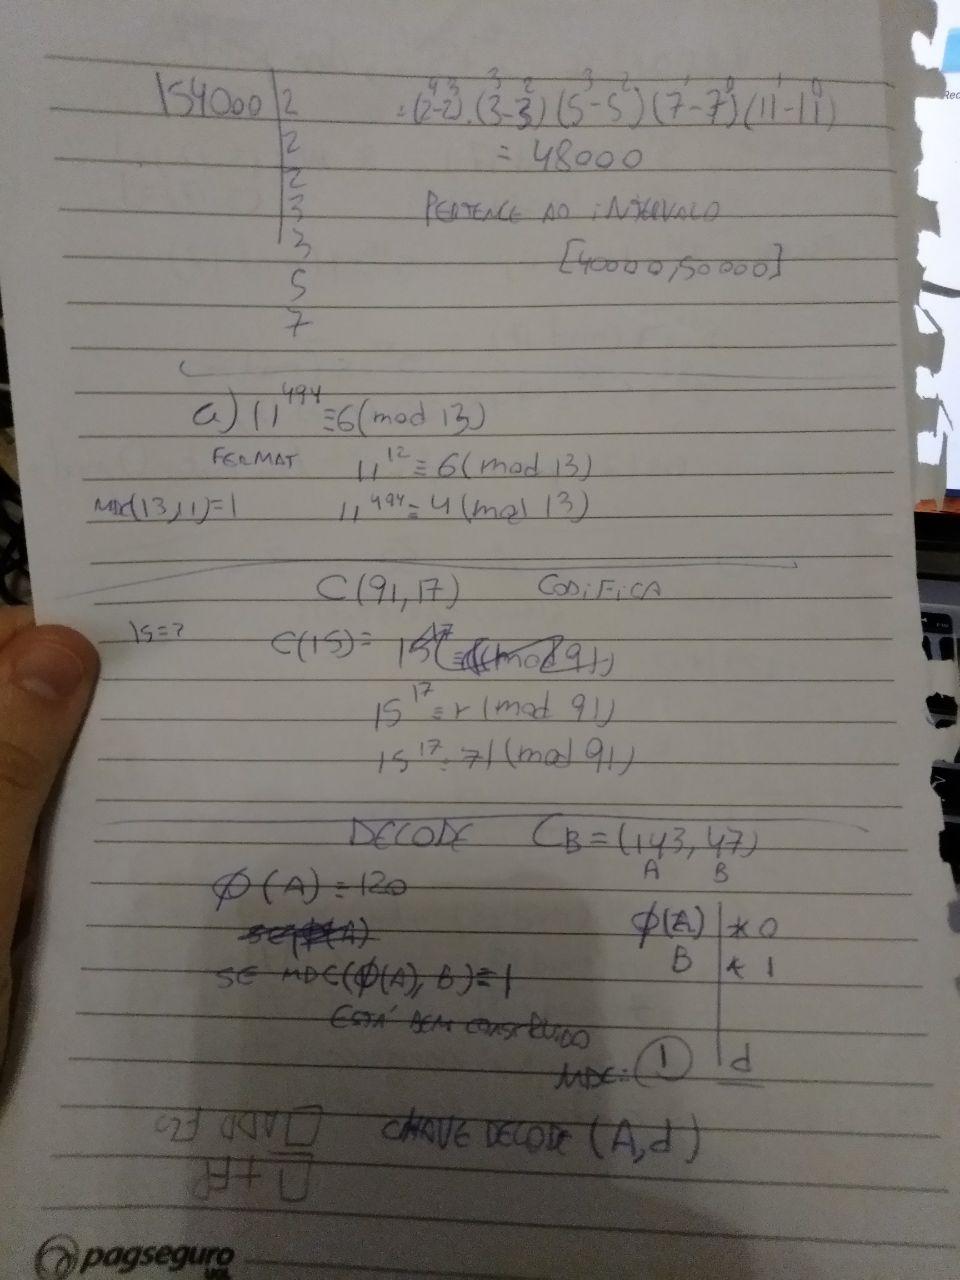 154000 | 2 = (2⁴-2³).(3³-3²)(5³-5²)(7¹-7⁰)(11¹-11⁰)
2 = 48000
2
3 PERTENCE AO INTERVALO
3 [40000,50000]
5
7
a) 11⁴⁹⁴ ≡ 6(mod 13)
FERMAT 11¹² ≡ 6(mod 13)
MDC(13,11)=1 11⁴⁹⁴ ≡ 4(mod 13)
C(91,17) CODIFICA
15=? C(15)= 15¹⁷ (mod 91)
15¹⁷ ≡ r(mod 91)
15¹⁷ ≡ 71(mod 91)
DECODE CB=(143,47)
A B
φ(A)=120
φ(A) | * 0
SE MDC(φ(A),B)=1 B | * 1
ESTÁ BEM CONSTRUIDO
MDC: 1 | d
CHAVE DECODE (A,d)
pagseguro
UOL